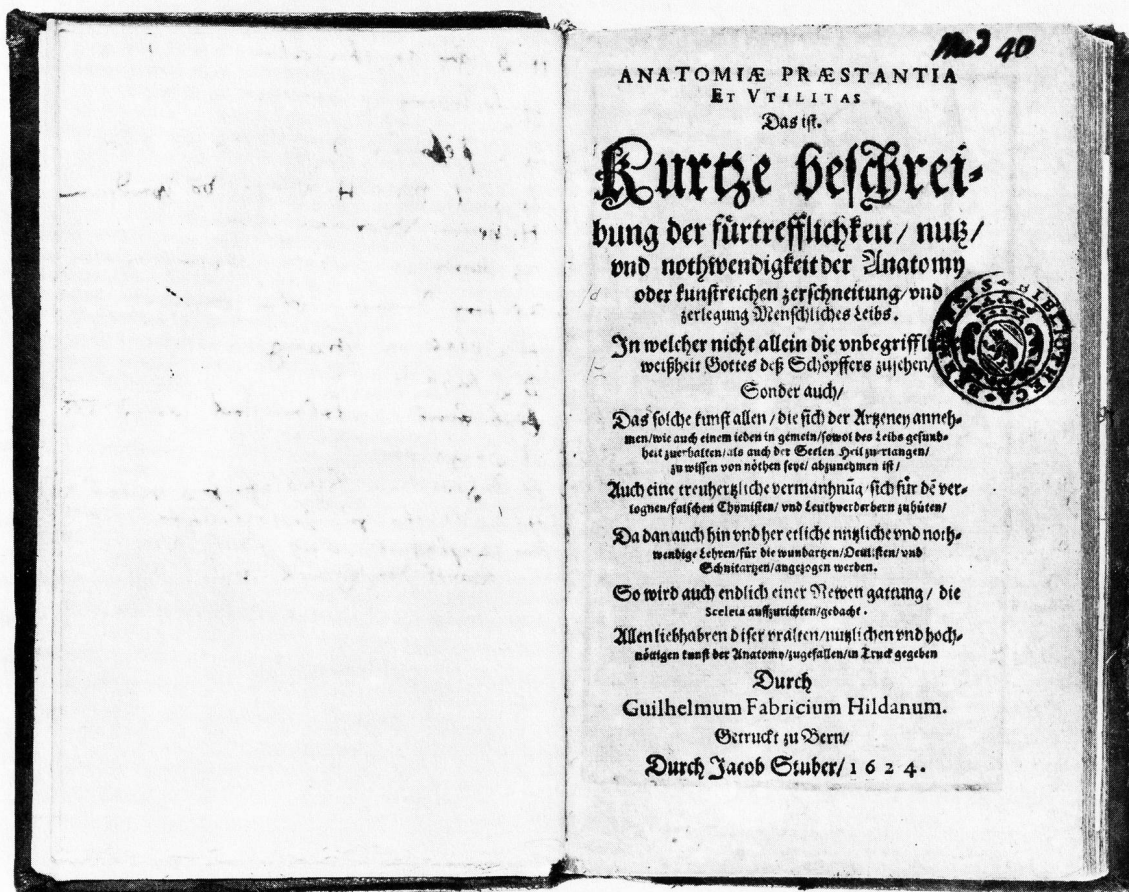 Med 40
ANATOMIÆ PRÆSTANTIA
ET VTILITAS
Das ist.
Kurtze beschrei-
bung der fürtrefflichkeit / nutz /
vnd nothwendigkeit der Anatomy
oder kunstreichen zerschneitung / vnd
zerlegung Menschliches Leibs.
In welcher nicht allein die
weißheit Gottes deß Schöpffers zusehen /
Sonder auch /
Das solche kunst allen / die sich der Artzeney anneh-
men / wie auch einem ieden in gemein / sowol des Leibs gesund-
heit zuerhalten / als auch der Seelen Heil zuerlangen /
zu wissen von nöthen seye / abzunehmen ist /
Auch eine treuhertzliche vermanhnũg / sich für dẽ ver-
lognen / falschen Chymisten / vnd Leuthverderbern zuhüten /
Da dan auch hin vnd her etliche nutzliche vnd noth-
wendige Lehren / für die wundartzen / Oculisten / vnd
Schnitartzen / angezogen werden.
So wird auch endlich einer Newen gattung / die
Sceleta auffzurichten / gedacht.
Allen liebhabren diser vralten / nutzlichen vnd hoch-
nöttigen kunst der Anatomy / zugefallen / in Truck gegeben
Durch
Guilhelmum Fabricium Hildanum.
Getruckt zu Bern /
Durch Jacob Stuber / 1624.
BIBLIOTHECA BERNENSIS